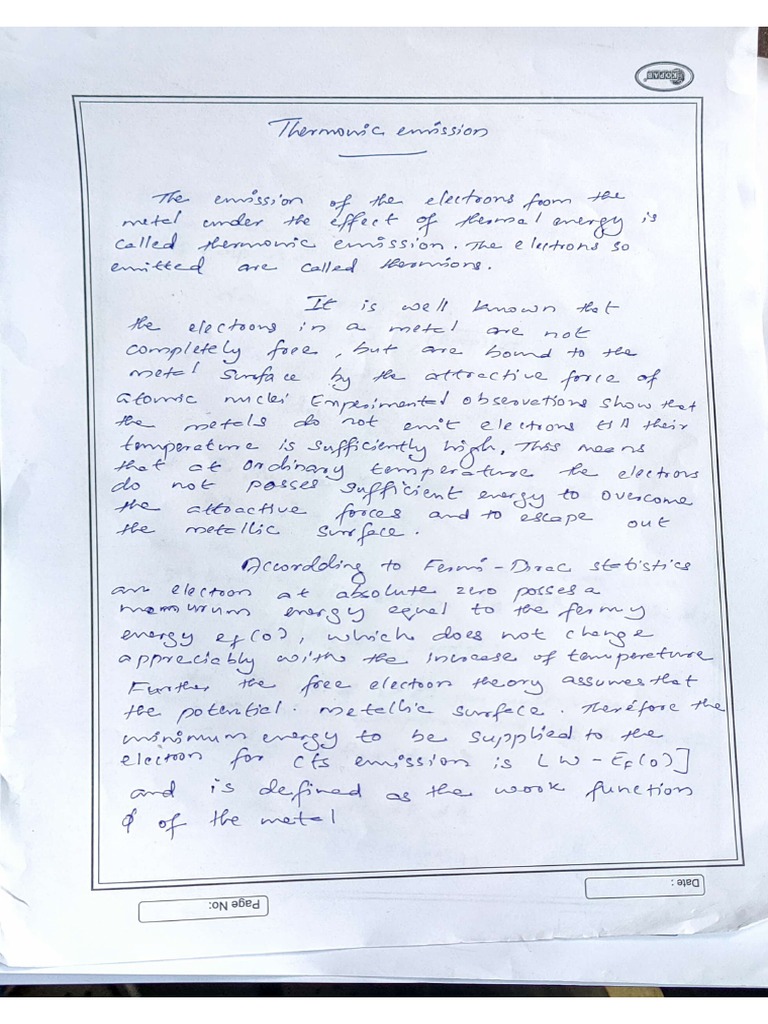 KOPAB
Thermonic emission
The emission of the electrons from the
metal under the effect of thermal energy is
called thermonic emission. The electrons so
emitted are called thermions.
It is well known that
the electrons in a metal are not
completely free, but are bound to the
metal surface by the attractive force of
atomic nuclei Emperimented observations show that
the metals do not emit electrons their
temperature is sufficiently high, This means
that at ordinary temperature the electrons
do not posses sufficient energy to overcome
the attractive forces and to escape out
the metallic surface.
Accordding to Fermi-Dirac statistics
an electron at absolute zero posses a
energy equal to the fermy
energy ef(0), which does not change
appreciably with the increase of temperature
Further the free electron theory assumes that
the potential. metallic surface. Therefore the
minimum energy to be supplied to the
electron for emission is [W-EF(0)]
and is defined as the work function
ϕ of the metal
Date :
Page No: